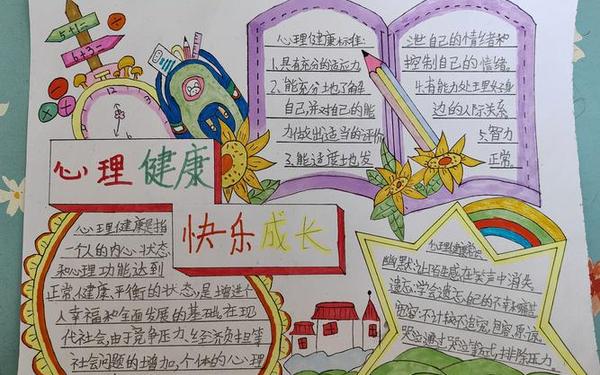 心理健康
快乐成长
心理健康标准:
1.具有充分的适应力
2、能充分地了解
自己,并对自己的能
力做出适当的评价
3、能适度地发
泄自己的情绪和
控制自己的情绪。
4.有能力处理好身
边的人际关系
5.智力
正常
心理健康是指
一个人的内心状态
和心理功能达到
正常、健康、平衡的状态,是增进个
人幸福和全面发展的基础,在现
代社会,由于竞争压力、经济负担等
社会问题的增加,个体的心理
心理健康
幽默:让陌生感在笑声中消失。
遗忘:学会遗忘,自己的不幸
宽容:不计较,不追究,自容,原谅。
哭泣:通过哭泣等形式排除压力。